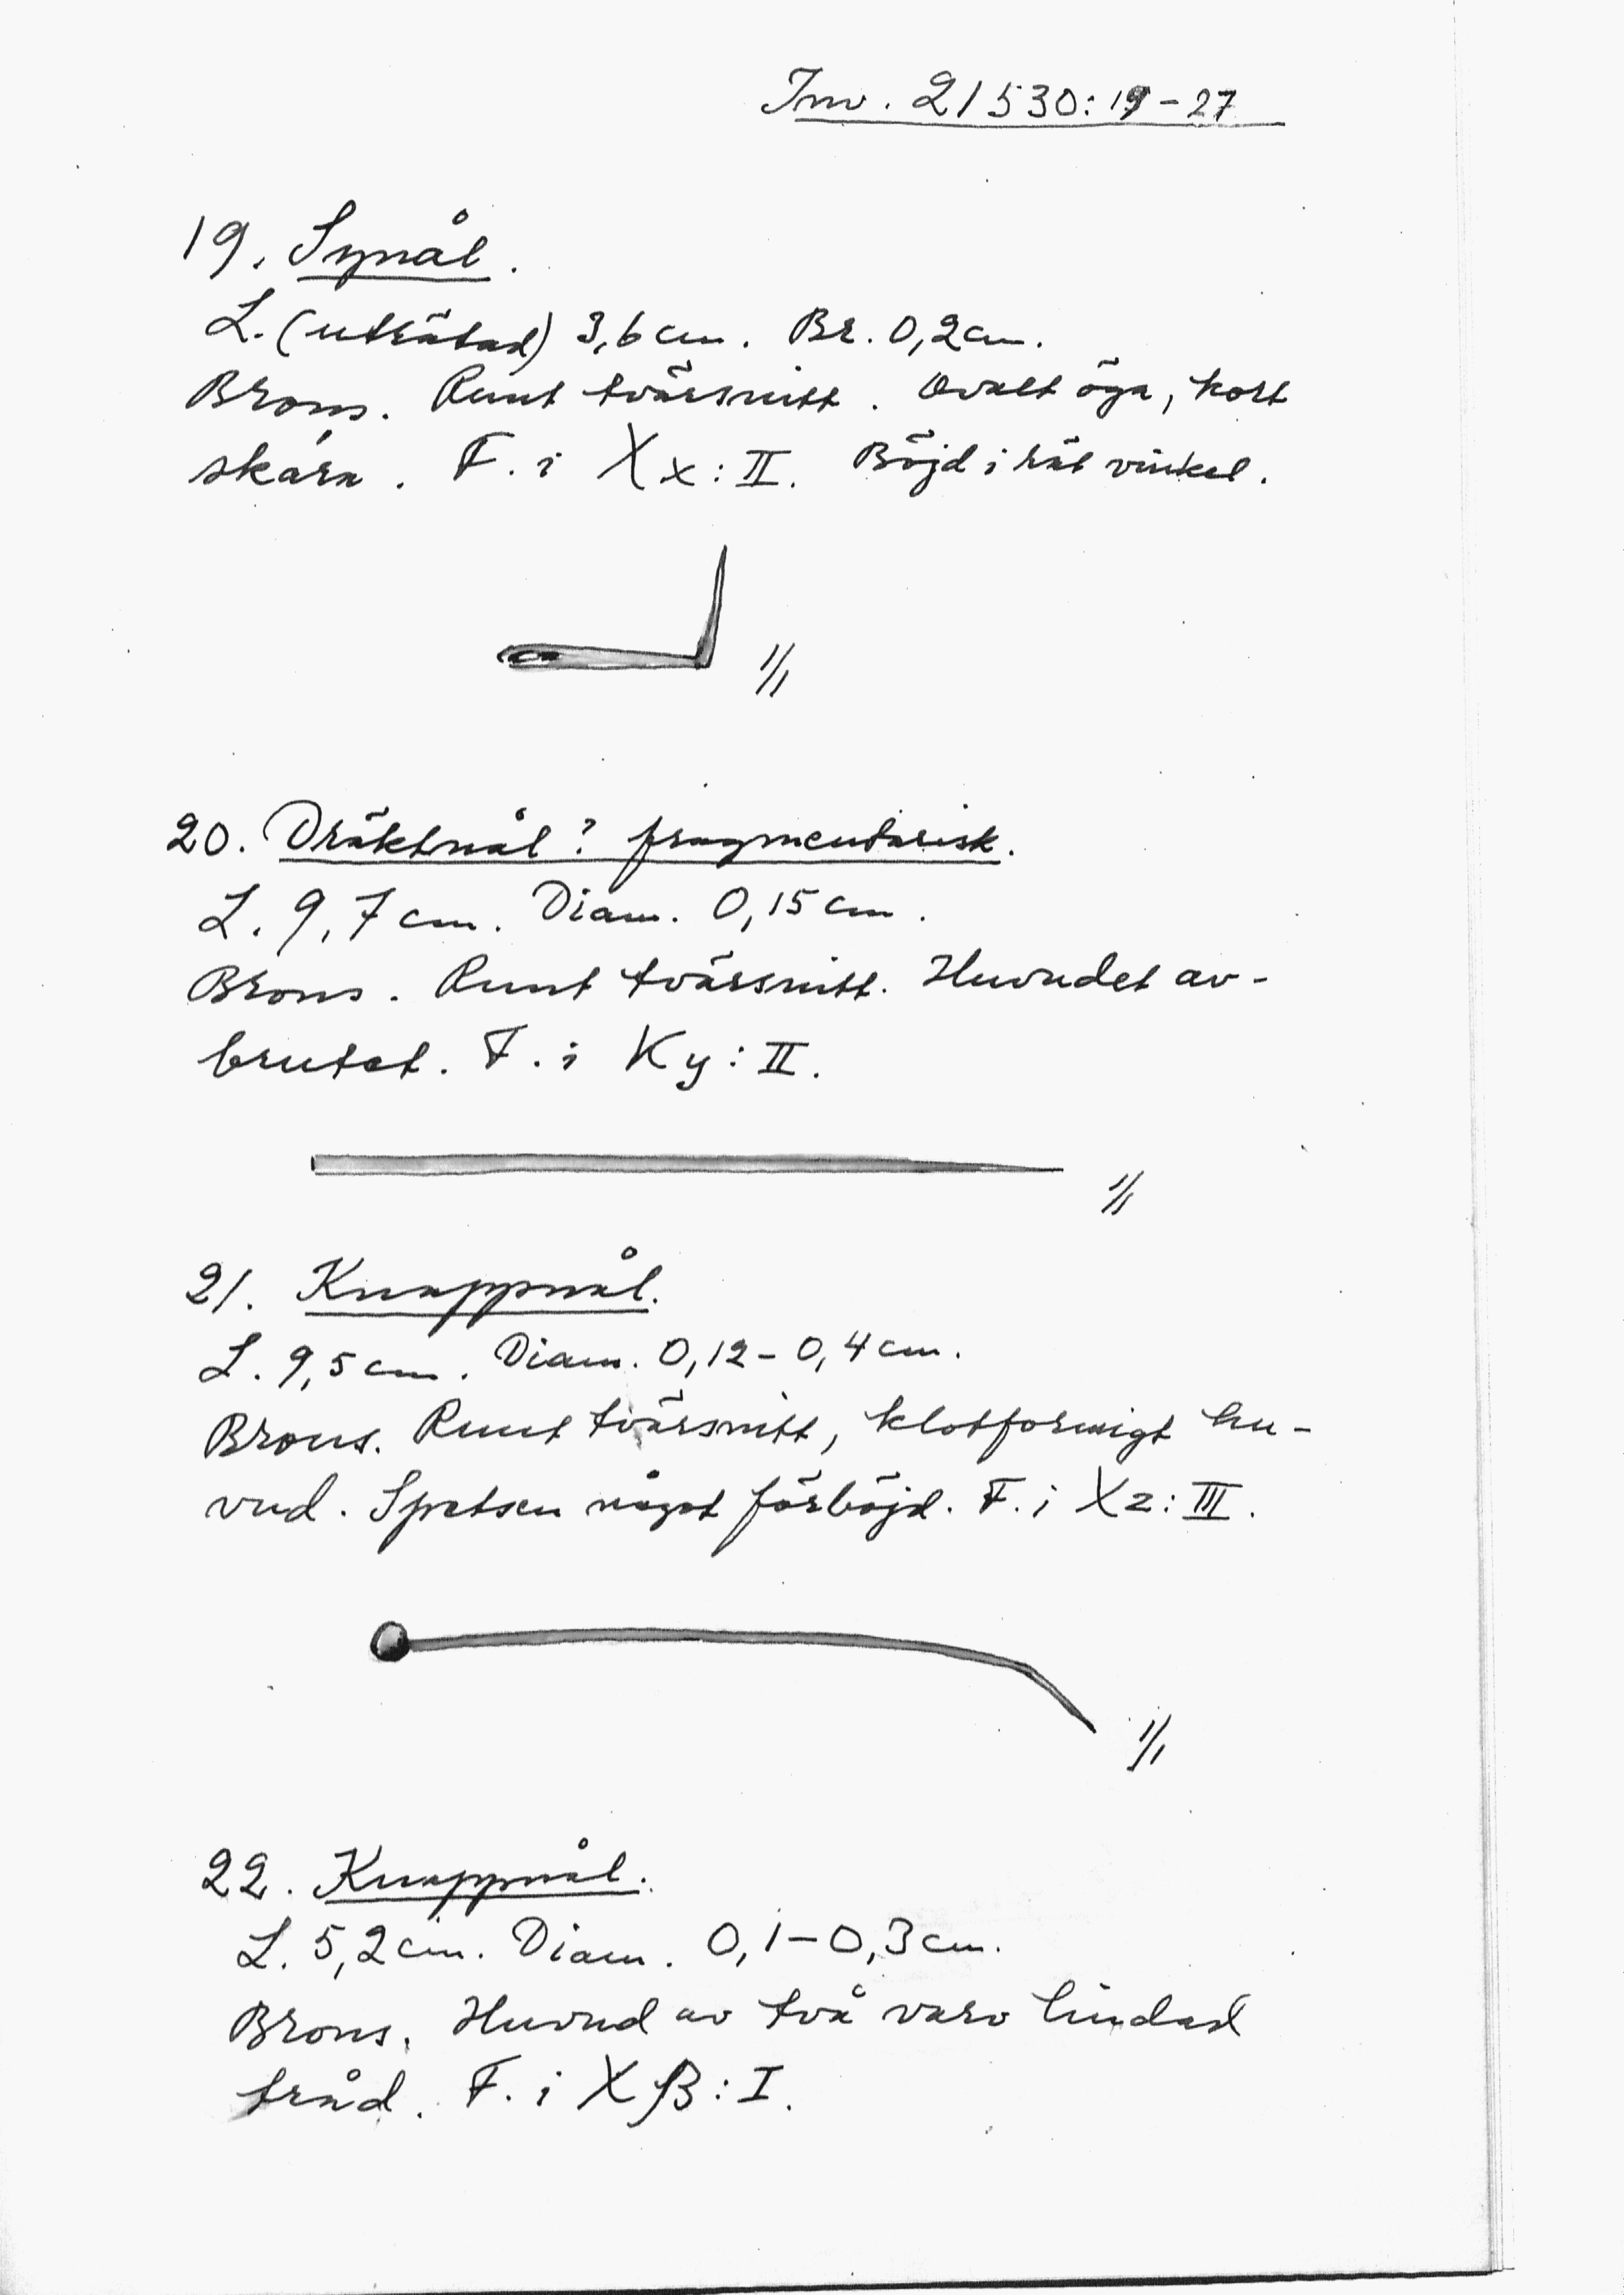 Inv. 21530:19-27
19. Synål.
L. (uträtad) 3,6 cm. Br. 0,2 cm.
Brons. Runt tvärsnitt. Ovalt öga, kort
skåra. F. i Xx:II. Böjd i rät vinkel.
1/1
20. Dräktnål? fragmentarisk.
L. 9,7 cm. Diam. 0,15 cm.
Brons. Runt tvärsnitt. Huvudet av-
brutet. F. i Ky:II.
1/1
21. Knappnål.
L. 9,5 cm. Diam. 0,12-0,4 cm.
Brons. Runt tvärsnitt, klotformigt hu-
vud. Spetsen något förböjd. F. i Xz:III.
1/1
22. Knappnål.
L. 5,2 cm. Diam. 0,1-0,3 cm.
Brons. Huvud av två varv lindad
tråd. F. i Xβ:I.